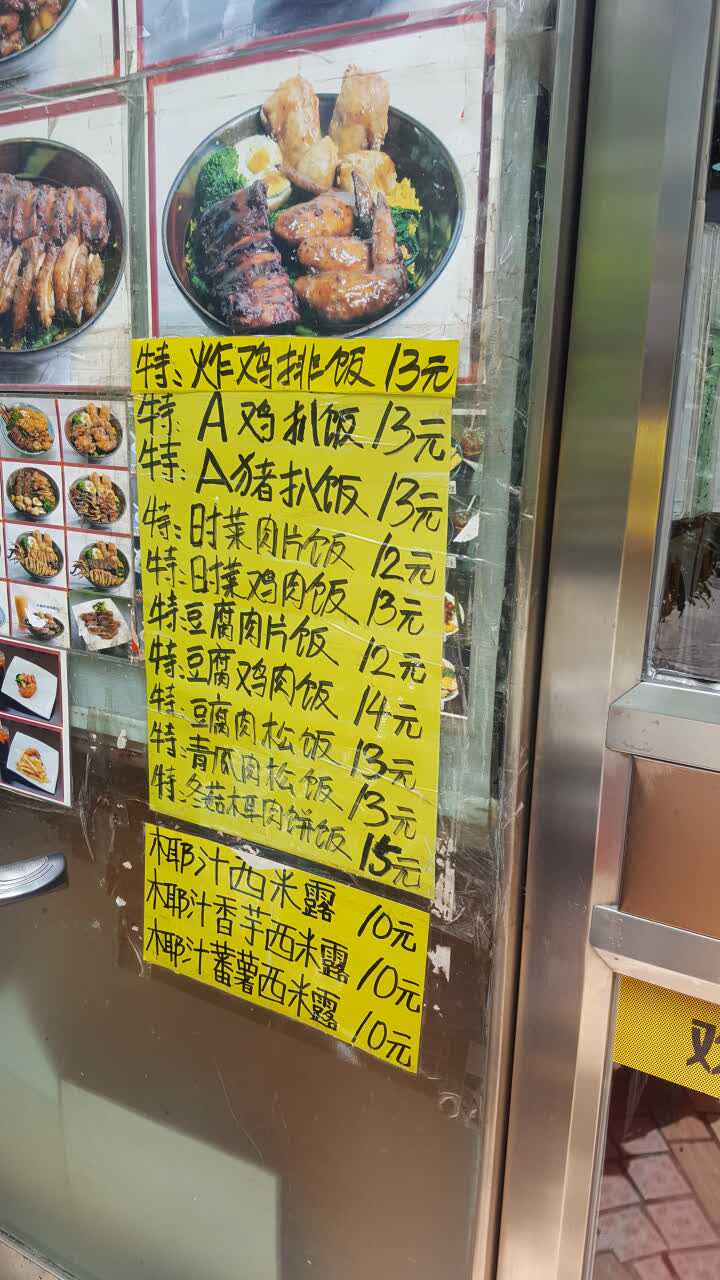 特:炸鸡排饭 13元
特:A鸡扒饭 13元
特:A猪扒饭 13元
特:时菜肉片饭 12元
特:时菜鸡肉饭 13元
特:豆腐肉片饭 12元
特:豆腐鸡肉饭 14元
特:豆腐肉松饭 13元
特:青瓜肉松饭 13元
特:冬菇木耳肉饼饭 15元
椰汁西米露 10元
椰汁香芋西米露 10元
椰汁蕃薯西米露 10元
欢